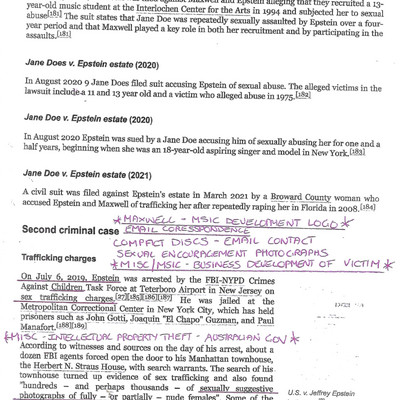 year-old music student at the Interlochen Center for the Arts in 1994 and subjected her to sexual
abuse[181] The suit states that Jane Doe was repeatedly sexually assaulted by Epstein over a four-
year period and that Maxwell played a key role in both her recruitment and by participating in the
assaults.[181]
Jane Does v. Epstein estate (2020)
In August 2020 9 Jane Does filed suit accusing Epstein of sexual abuse. The alleged victims in the
lawsuit include a 11 and 13 year old and a victim who alleged abuse in 1975.[182]
Jane Doe v. Epstein estate (2020)
In August 2020 Epstein was sued by a Jane Doe accusing him of sexually abusing her for one and a
half years, beginning when she was an 18-year-old aspiring singer and model in New York.[183]
Jane Doe v. Epstein estate (2021)
A civil suit was filed against Epstein's estate in March 2021 by a Broward County woman who
accused Epstein and Maxwell of trafficking her after repeatedly raping her in Florida in 2008.[184]
*MAXWELL - MSIC DEVELOPMENT LOGO *
Second criminal case EMAIL CORESSPONDENCE
COMPACT DISCS - EMAIL CONTACT
SEXUAL ENCOURAGEMENT PHOTOGRAPHS
Trafficking charges * MISC/MSIC - BUSINESS DEVELOPMENT OF VICTIM *
On July 6, 2019, Epstein was arrested by the FBI-NYPD Crimes
Against Children Task Force at Teterboro Airport in New Jersey on
sex trafficking charges.[27][185][186][187] He was jailed at the
Metropolitan Correctional Center in New York City, which has held
prisoners such as John Gotti, Joaquín "El Chapo" Guzman, and Paul
Manafort.[188][189]
*MISC - INTELLECTUAL PROPERTY THEFT - AUSTRALIAN GOV *
According to witnesses and sources on the day of his arrest, about a
dozen FBI agents forced open the door to his Manhattan townhouse,
the Herbert N. Straus House, with search warrants. The search of his
townhouse turned up evidence of sex trafficking and also found
"hundreds – and perhaps thousands – of sexually suggestive
photographs of fully – or partially – nude females". Some of the
U.S. v. Jeffrey Epstein